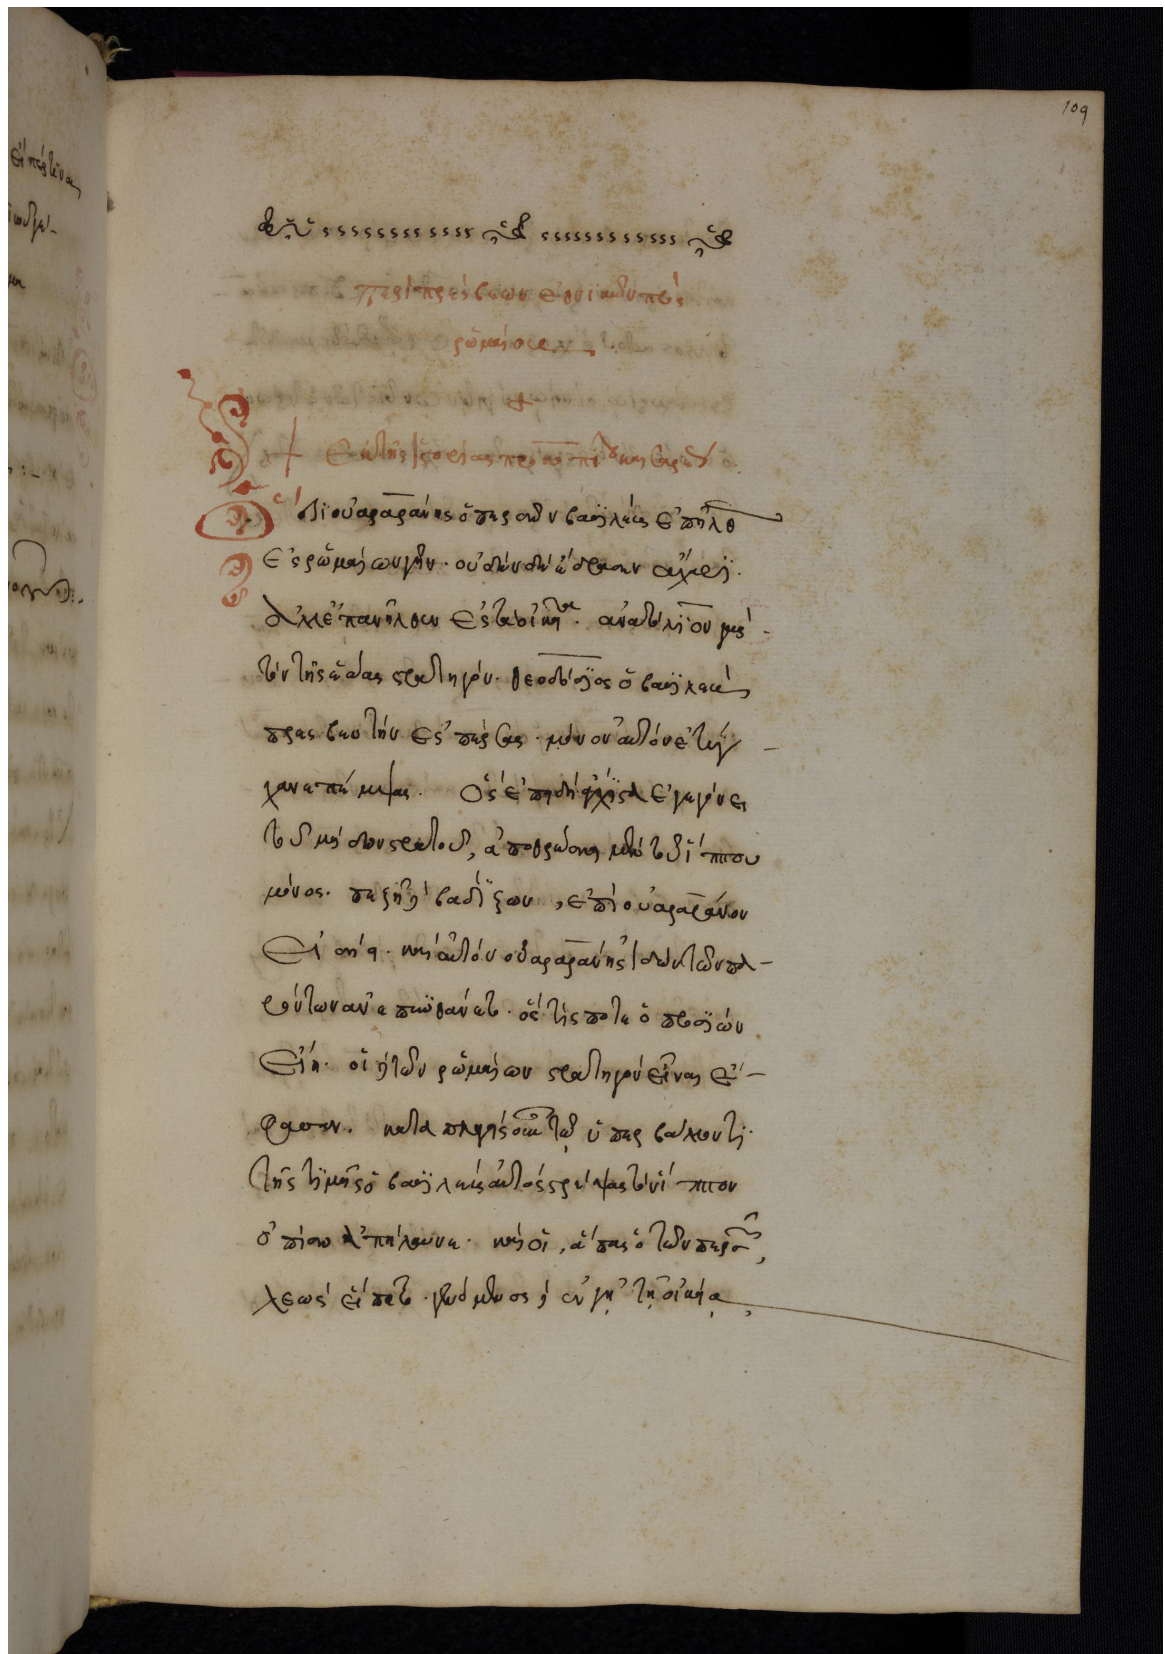 109
Περὶ πρέσβεων ἐθνικῶν πρὸς
ῥωμαίους
Ἐκ τῆς ἱστορίας προκοπίου καισαρέως
Ὅτι οὐαραράνης ὁ περσῶν βασιλεὺς ἐπῆλθεν
ἐς ῥωμαίων γῆν· οὐδὲν δὲ ἔδρασεν ἄχαρι·
ἀλλ' ἐπανῆλθεν ἐς τὰ οἰκεῖα· ἀνατόλιον γὰρ
τὸν τῆς ἑώας στρατηγόν· θεοδόσιος ὁ βασιλεὺς
πρεσβευτὴν ἐς πέρσας· μόνον αὐτὸν ἐτύγ-
χανε πέμψας. ὃς ἐπειδὴ ἄγχιστα ἐγεγόνει
τοῦ μήδων στρατοῦ, ἀποθρώσκει μὲν τοῦ ἵππου
μόνος· πεζῆ δὲ βαδίζων, ἐπὶ οὐαραράνου
ᾔει· καὶ αὐτὸν οὐαραράνης ἰδὼν τῶν πα-
ρόντων ἀνεπυνθάνετο· ὅστίς ποτε ὁ προσιὼν
εἴη· οἱ δὲ τῶν ῥωμαίων στρατηγὸν εἶναι ἔ-
φασαν. καταπλαγεὶς οὖν τῷ ὑπερβάλλοντι
τῆς τιμῆς ὁ βασιλεὺς αὐτὸς στρέψας τὸν ἵππον
ὀπίσω ἀπήλαυνε· καὶ οἱ, ἅπας ὁ τῶν περσῶν
λεὼς εἵπετο· γενόμενος δὲ ἐν γῇ τῇ οἰκείᾳ